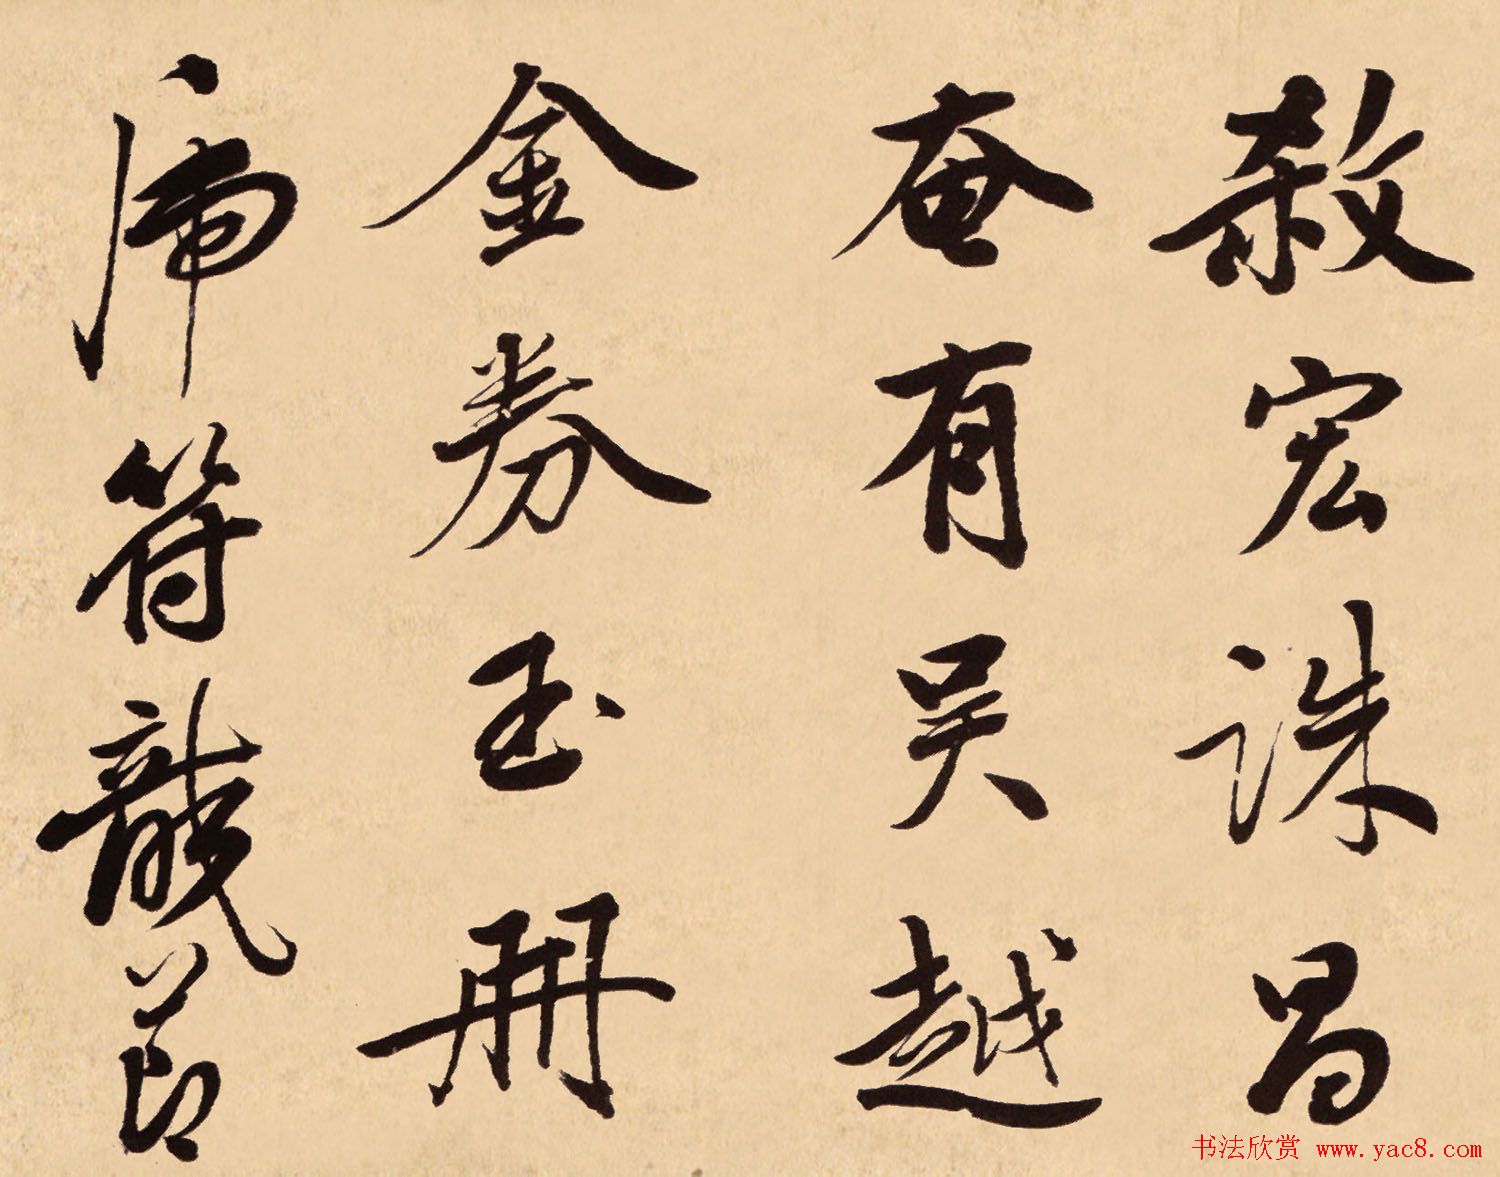 殺宏誅昌
奄有吴越
金券玉冊
虎符龍節
书法欣赏 www.yac8.com